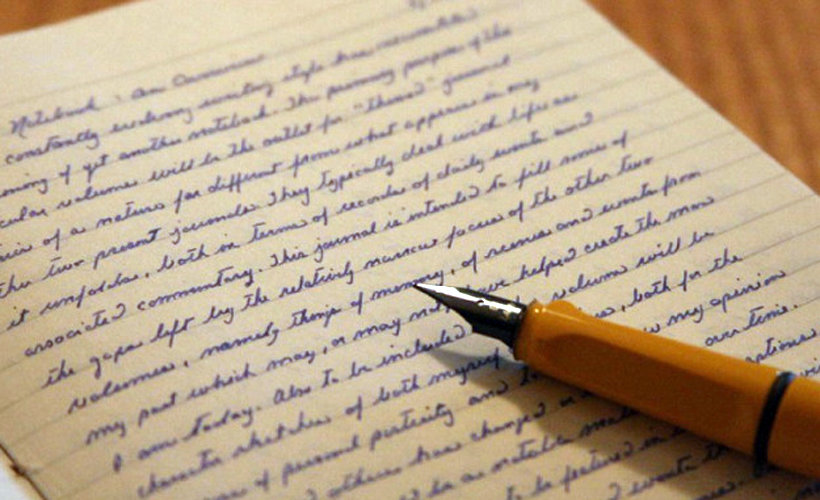 Notebook : An Overview
constantly evolving writing style has
of yet another notebook. The primary purpose of the
volumes will be the outlet for "themed" journal
of a nature far different from what appears in my
two present journals. They typically deal with life as
it unfolds, both in terms of records of daily events and
associated commentary. This journal is intended to fill some of
the gaps left by the relatively narrow focus of the other two
volumes, namely things of memory, of scenes and events from
my past which may, or may not, have helped create the man
I am today. Also to be included volume will be
character sketches of both myself , both for the
of personal posterity and my opinion
others have changed over time.
be a notable
to be featured in